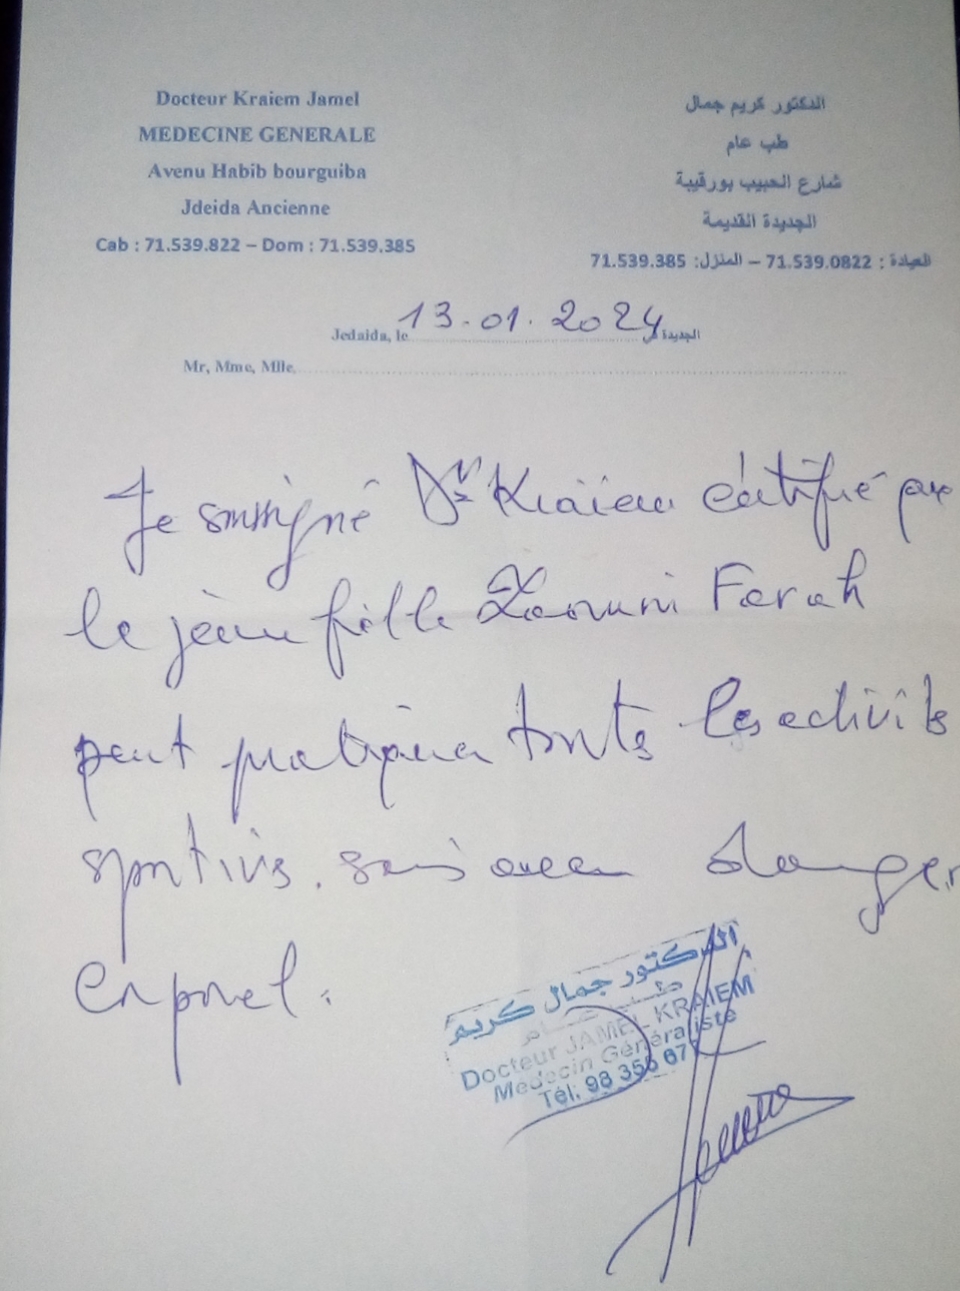 Docteur Kraiem Jamel
MEDECINE GENERALE
Avenu Habib bourguiba
Jdeida Ancienne
Cab : 71.539.822 – Dom : 71.539.385
الدكتور كريم جمال
طب عام
شارع الحبيب بورقيبة
الجديدة القديمة
العيادة : 71.539.0822 – المنزل: 71.539.385
Jedaida, le 13.01.2024 الجديدة في
Mr, Mme, Mlle
Je soussigné Dr Kraiem certifié que
le jeune fille Farah
peut pratiquer touts les activits
sportivis. sans aucun danger
الدكتور جمال كريم
طب عام
Docteur JAMEL KRAIEM
Médecin Généraliste
Tél. 98 356 67